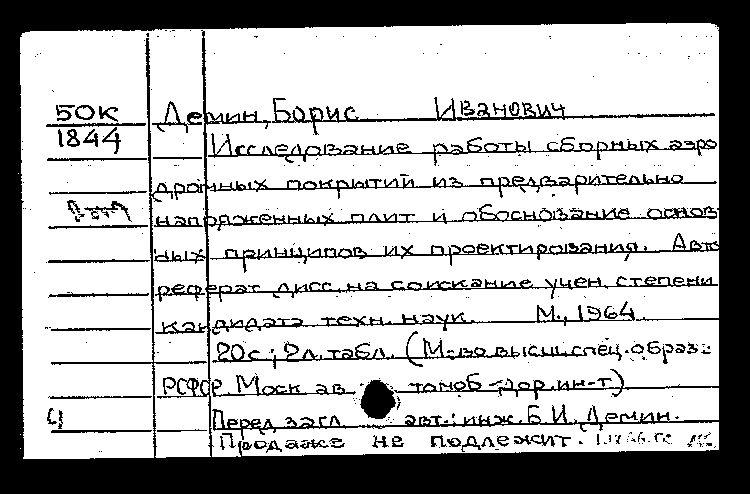 50К
1844
Демин, Борис Иванович
Исследование работы сборных аэро
дромных покрытий из предварительно
напряженных плит и обоснование основ
ных принципов их проектирования. Авто
реферат дисс. на соискание учен. степени
кандидата техн. наук. М., 1964.
20с; 2л. табл. (М-во высш. спец. образ.
РСФСР. Моск ав томоб-дор. ин-т)
Перед загл авт.: инж. Б.И. Демин.
Продаже не подлежит.